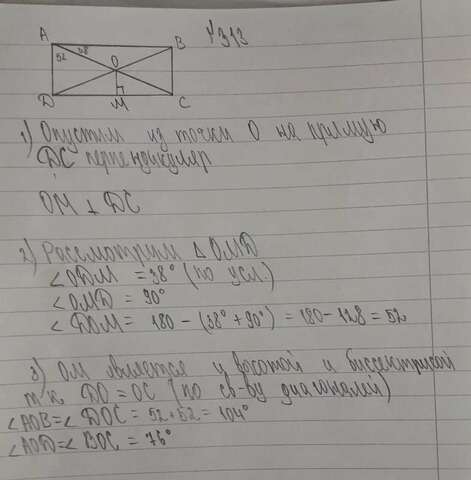 №313
A
B
52
38
O
D
M
C
1) Опустим из точки О на прямую
DC перпендикуляр
OM ⊥ DC
2) Рассмотрим △ OMD
∠ODM = 38° (по усл.)
∠OMD = 90°
∠DOM = 180 - (38° + 90°) = 180 - 128 = 52
3) OM является и высотой и биссектрисой
т.к. DO = OC (по св-ву диагоналей)
∠AOB = ∠DOC = 52 + 52 = 104°
∠AOD = ∠BOC = 76°